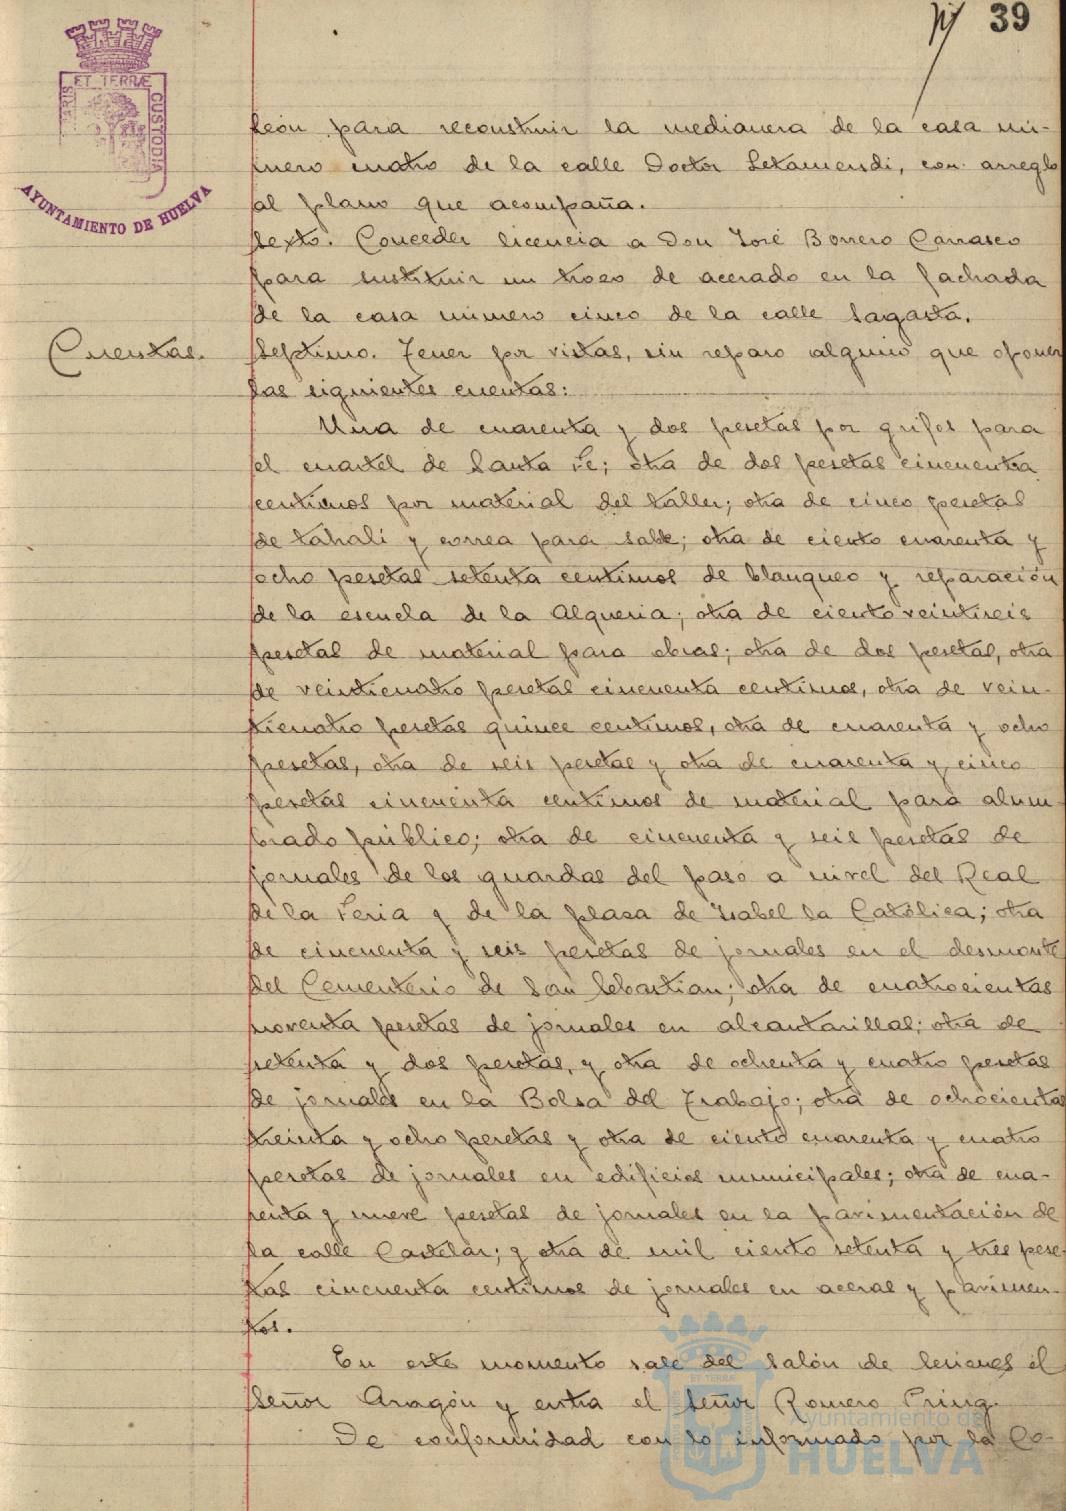 39
ET TERRÆ
CUSTODIA
AYUNTAMIENTO DE HUELVA
león para reconstruir la medianera de la casa nú-
mero cuatro de la calle Doctor Letamendi, con arreglo
al plano que acompaña.
Sexto. Conceder licencia a Don José Borrero Carrasco
para sustituir un trozo de acerado en la fachada
de la casa número cinco de la calle Sagasta.
Cuentas.
Septimo. Tener por vistas, sin reparo alguno que oponer
las siguientes cuentas:
Una de cuarenta y dos pesetas por grifos para
el cuartel de Santa Fe; otra de dos pesetas cincuenta
centimos por material del taller; otra de cinco pesetas
de tahalí y correa para sable; otra de ciento cuarenta y
ocho pesetas setenta centimos de blanqueo y reparación
de la escuela de la Alqueria; otra de ciento veintiseis
pesetas de material para obras; otra de dos pesetas, otra
de veinticuatro pesetas cincuenta centimos, otra de vein-
ticuatro pesetas quince centimos, otra de cuarenta y ocho
pesetas, otra de seis pesetas y otra de cuarenta y cinco
pesetas cincuenta centimos de material para alum-
brado público; otra de cincuenta y seis pesetas de
jornales de los guardas del paso a nivel del Real
de la Feria y de la plaza de Isabel la Católica; otra
de cincuenta y seis pesetas de jornales en el desmonte
del Cementerio de San Sebastian; otra de cuatrocientas
noventa pesetas de jornales en alcantarillas; otra de
setenta y dos pesetas, y otra de ochenta y cuatro pesetas
de jornales en la Bolsa del Trabajo; otra de ochocientas
treinta y ocho pesetas y otra de ciento cuarenta y cuatro
pesetas de jornales en edificios municipales; otra de cua-
renta y nueve pesetas de jornales en la pavimentación de
la calle Castelar; y otra de mil ciento setenta y tres pese-
tas cincuenta centimos de jornales en aceras y pavimen-
tos.
En este momento sale del salón de Sesiones el
Señor Aragón y entra el Señor Romero Pring.
De conformidad con lo informado por la Co-
Ayuntamiento de
HUELVA